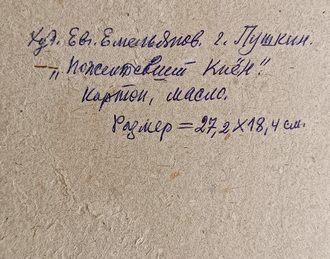 Худ. Евг. Емельянов. г. Пушкин.
— „Пожелтевший Клён".
Картон, масло.
Размер = 27,2 X 18,4 см.